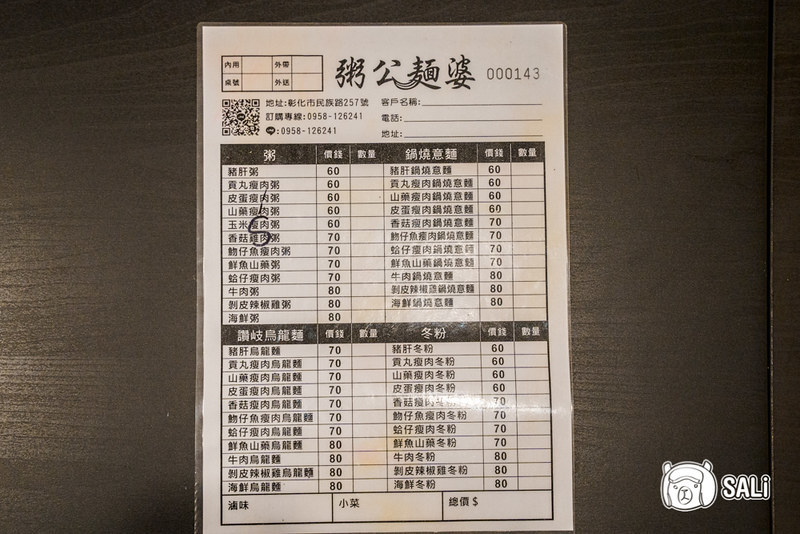 內用 外帶 粥公麵婆 000143
桌號 外送
地址:彰化市民族路257號 客戶名稱:
訂購專線:0958-126241 電話:
:0958-126241 地址:
粥 價錢 數量 鍋燒意麵 價錢 數量
豬肝粥 60 豬肝鍋燒意麵 60
貢丸瘦肉粥 60 貢丸瘦肉鍋燒意麵 60
皮蛋瘦肉粥 60 山藥瘦肉鍋燒意麵 60
山藥瘦肉粥 60 皮蛋瘦肉鍋燒意麵 60
玉米瘦肉粥 60 香菇瘦肉鍋燒意麵 70
香菇雞肉粥 70 魩仔魚瘦肉鍋燒意麵 70
魩仔魚瘦肉粥 70 蛤仔瘦肉鍋燒意麵 70
鮮魚山藥粥 70 鮮魚山藥鍋燒意麵 70
蛤仔瘦肉粥 70 牛肉鍋燒意麵 80
牛肉粥 80 剝皮辣椒雞鍋燒意麵 80
剝皮辣椒雞粥 80 海鮮鍋燒意麵 80
海鮮粥 80
讚岐烏龍麵 價錢 數量 冬粉 價錢 數量
豬肝烏龍麵 70 豬肝冬粉 60
貢丸瘦肉烏龍麵 70 貢丸瘦肉冬粉 60
山藥瘦肉烏龍麵 70 山藥瘦肉冬粉 60
皮蛋瘦肉烏龍麵 70 皮蛋瘦肉冬粉 60
香菇瘦肉烏龍麵 70 香菇瘦肉冬粉 70
魩仔魚瘦肉烏龍麵 70 魩仔魚瘦肉冬粉 70
蛤仔瘦肉烏龍麵 70 蛤仔瘦肉冬粉 70
鮮魚山藥烏龍麵 80 鮮魚山藥冬粉 70
牛肉烏龍麵 80 牛肉冬粉 80
剝皮辣椒雞烏龍麵 80 剝皮辣椒雞冬粉 80
海鮮烏龍麵 80 海鮮冬粉 80
滷味 小菜 總價$
SALi